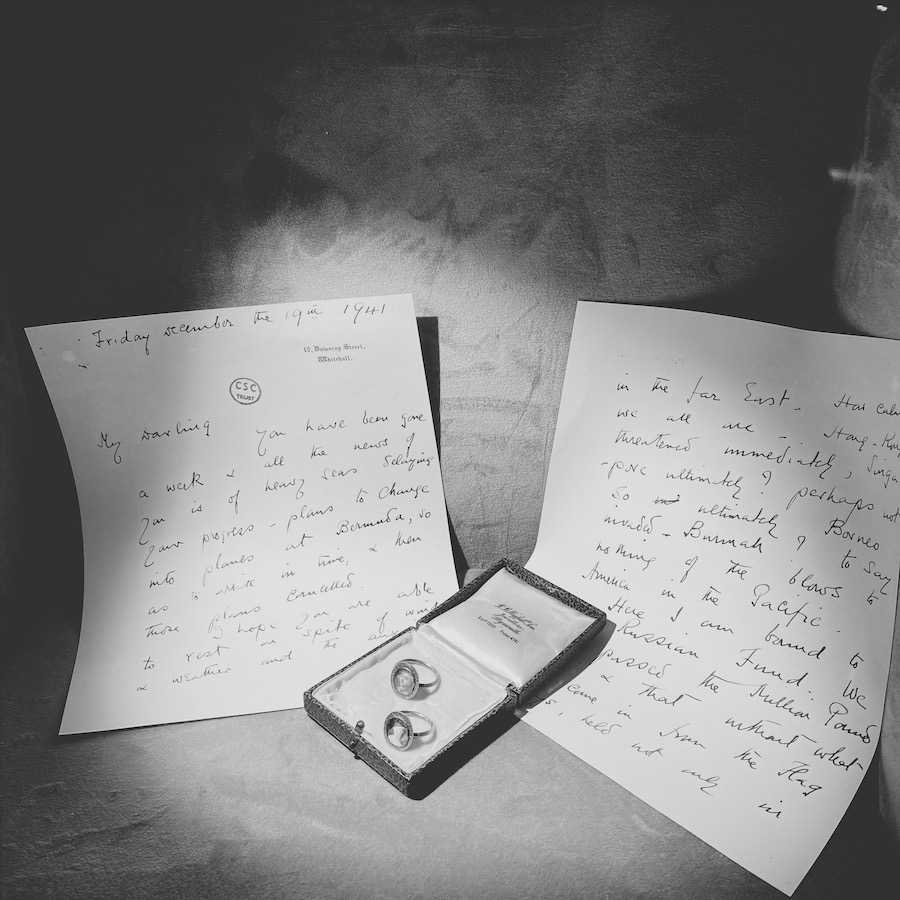 Friday December the 19th 1941
10, Downing Street,
Whitehall.
CSC
TRUST
My Darling you have been gone
a week & all the news of
you is of heavy seas delaying
your progress - plans to change
into planes at Bermuda, so
as to arrive in time, & then
those plans cancelled.
I hope you are able
to rest in spite of
& weather and the
in the far East - How calm
we all are - Hong-Kong
threatened immediately, Singa
-pore ultimately? perhaps not
so ultimately? Borneo
invaded - Burmah? to say
nothing of the blows to
America in the Pacific.
Here I am bound to
Russian Fund: We
passed the Million Pound
& that without what
came in from the Flag
held not only in